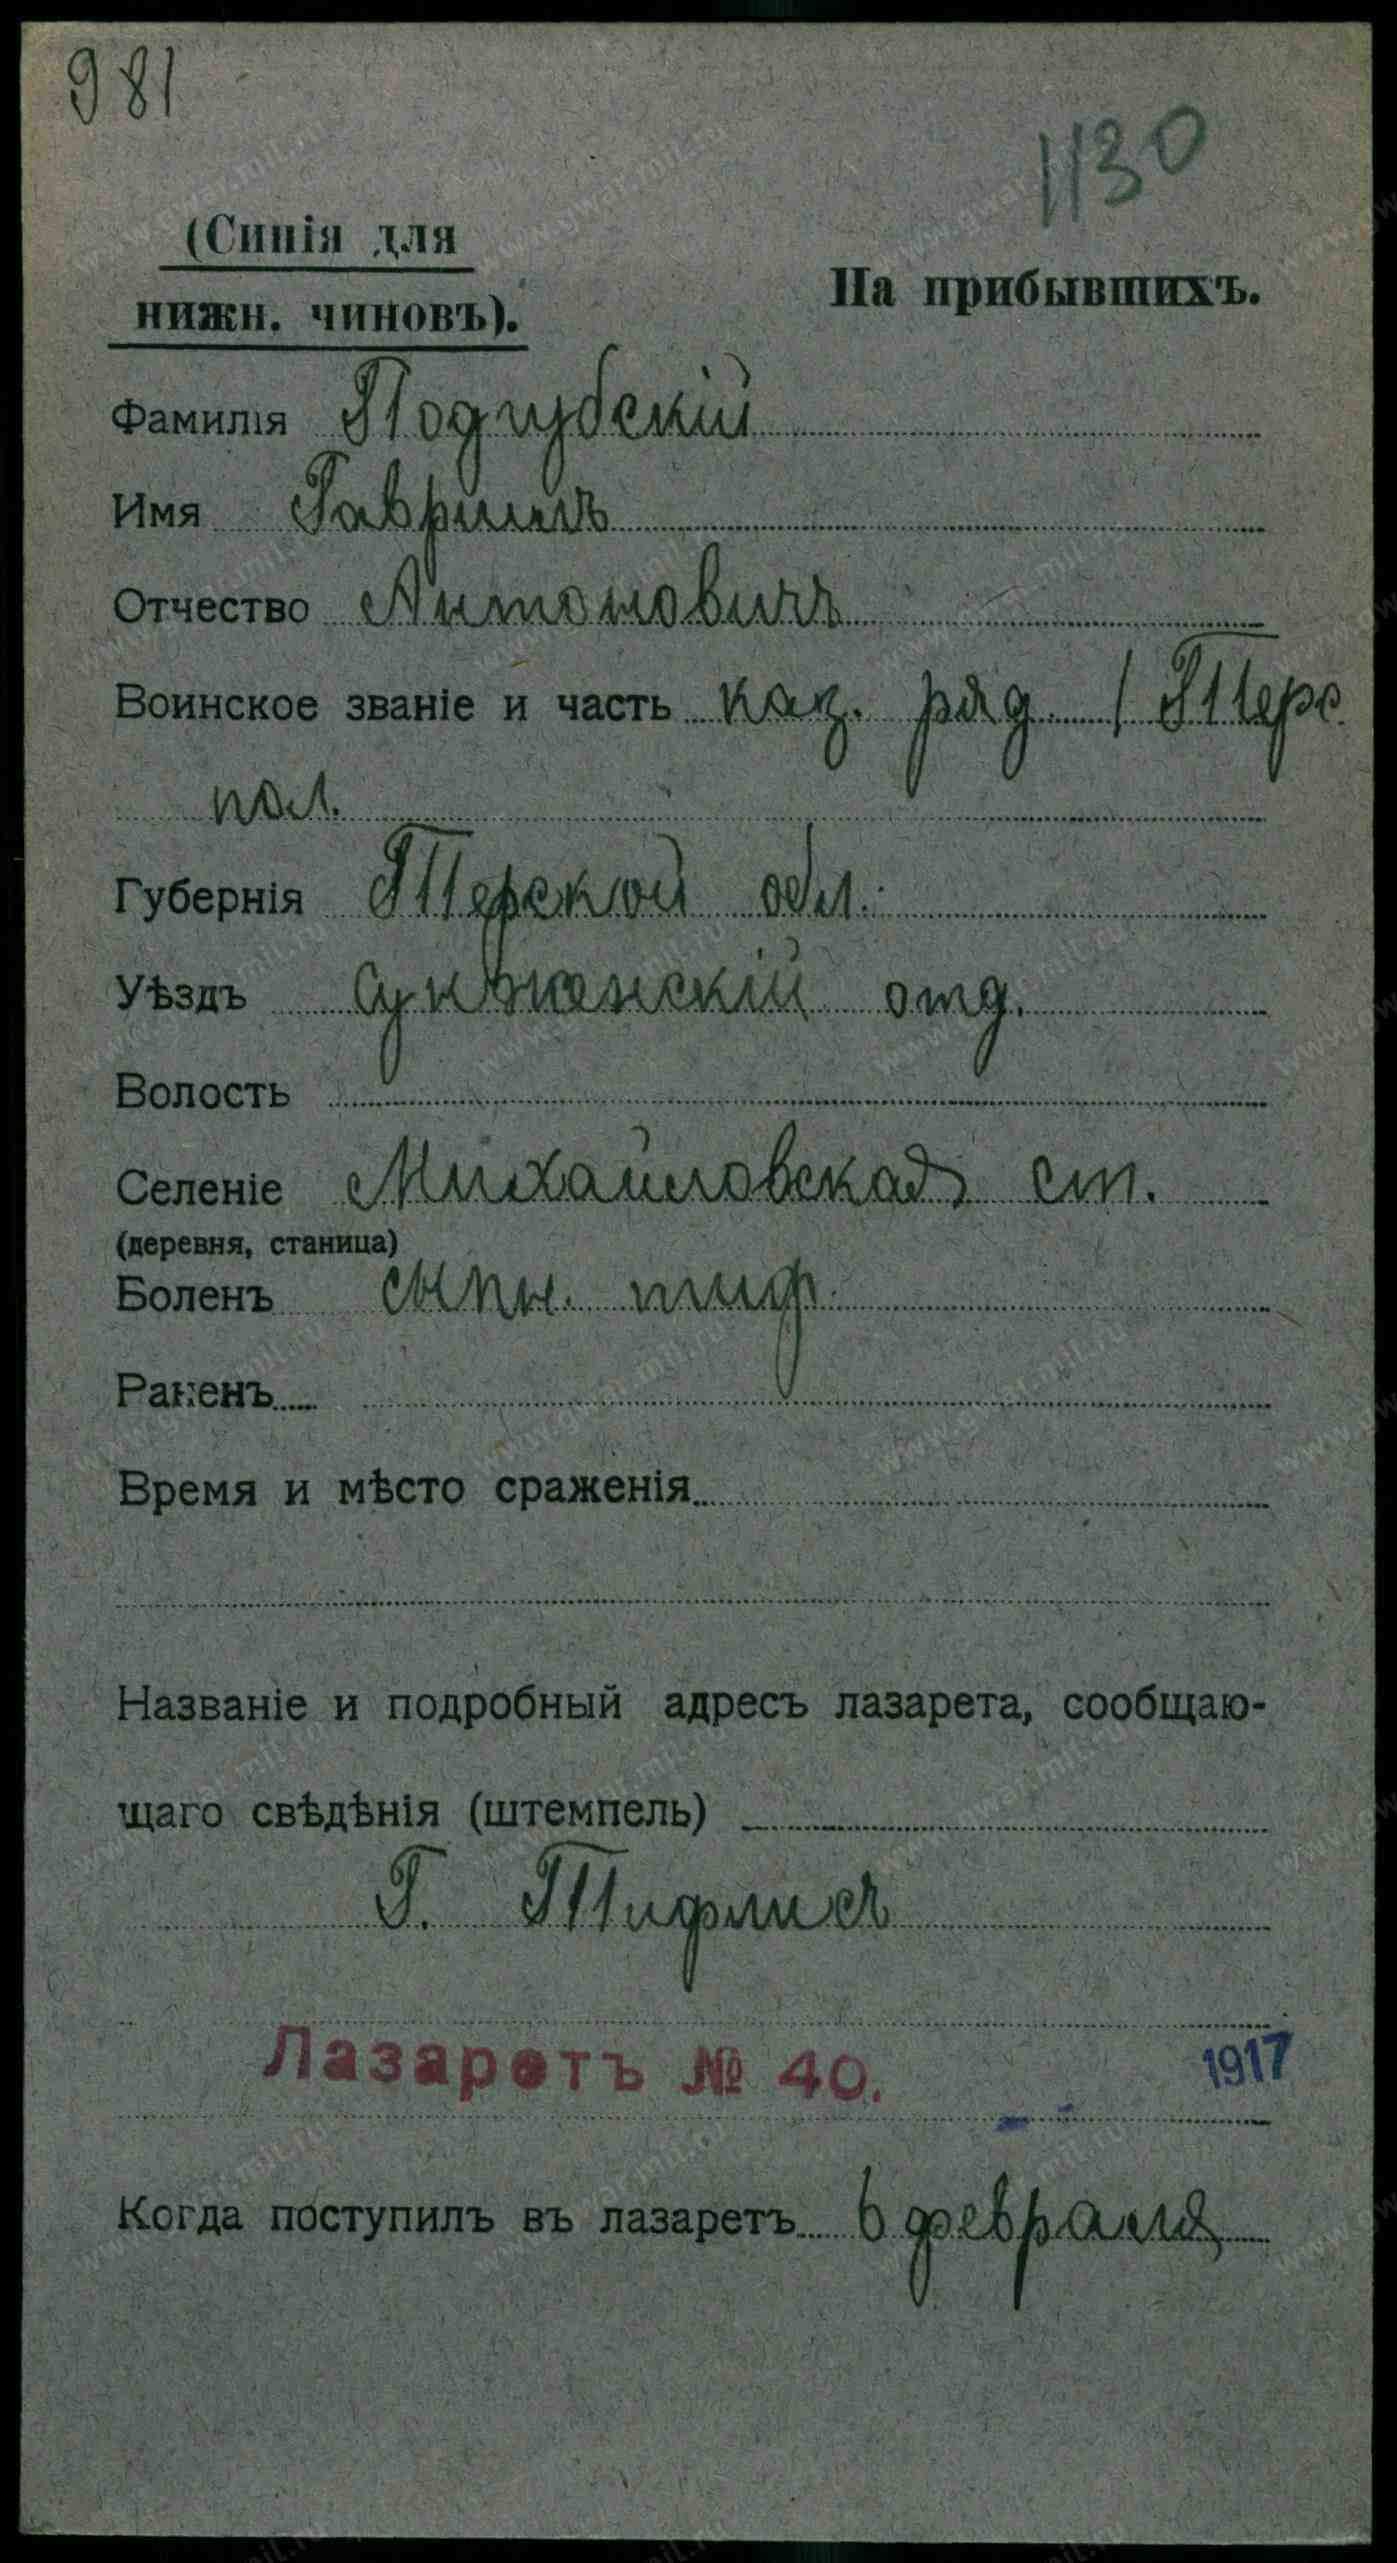 981
1130
(Синія для
нижн. чиновъ).
На прибывшихъ.
Фамилія Подгубскій
Имя Гавриилъ
Отчество Антоновичъ
Воинское званіе и часть каз. ряд. 1 Терс.
пол.
Губернія Терской обл.
Уѣздъ Сунженскій отд.
Волость
Селеніе Михайловская ст.
(деревня, станица)
Боленъ сыпн. тиф.
Раненъ
Время и мѣсто сраженія
Названіе и подробный адресъ лазарета, сообщаю-
щаго свѣдѣнія (штемпель)
Г. Тифлисъ
Лазаретъ № 40.
1917
Когда поступилъ въ лазаретъ 6 февраля